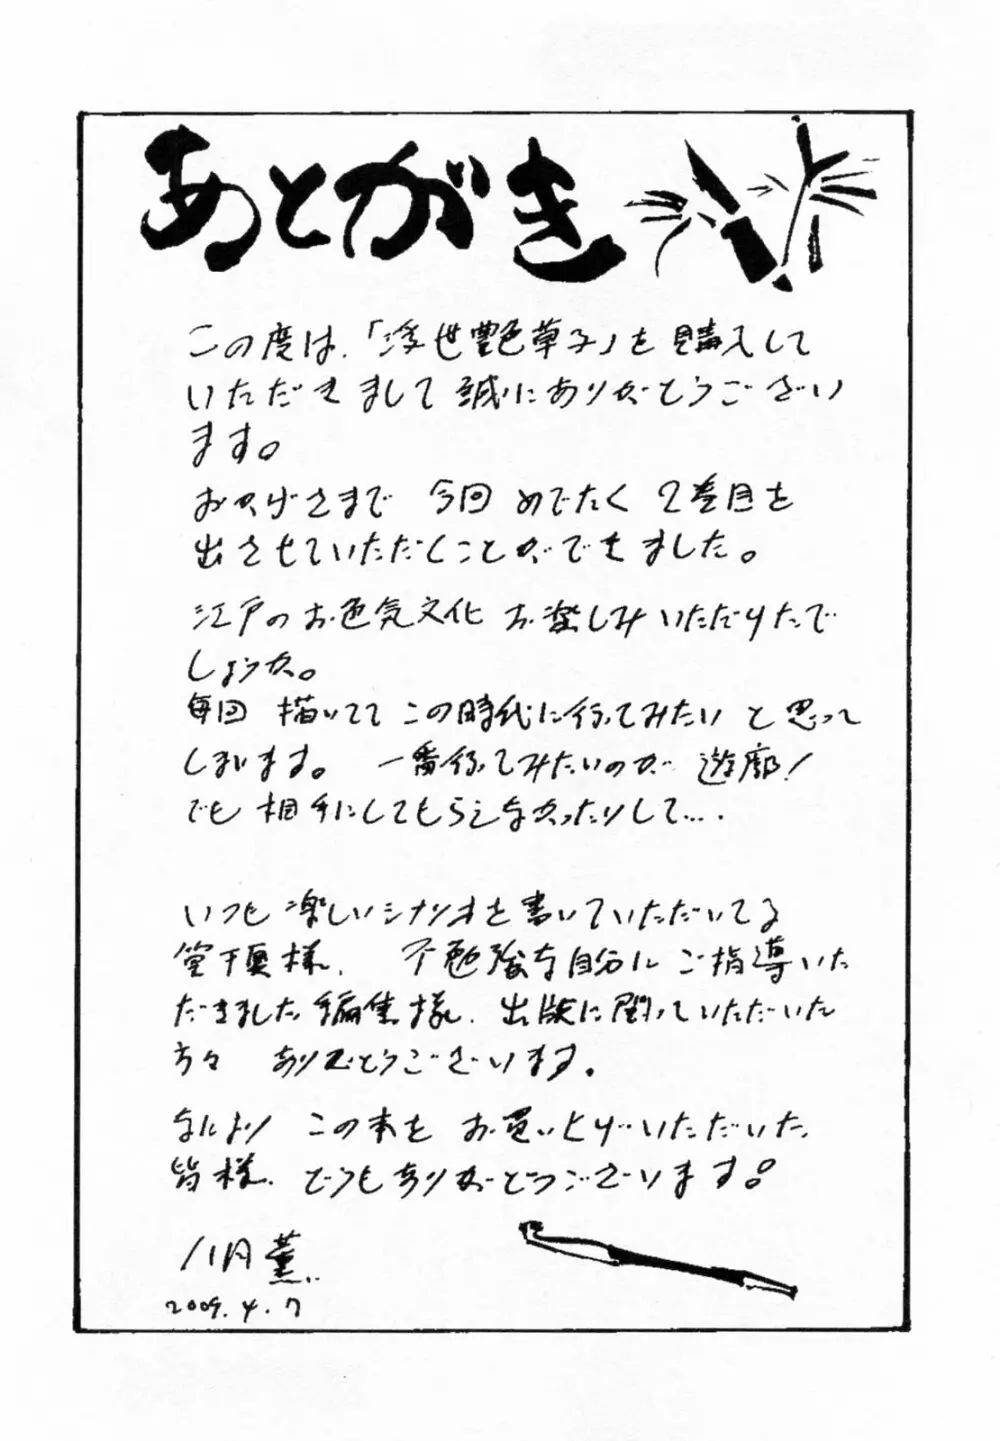 あとがき
この度は、「浮世艶色草子」を購入して
いただきまして誠にありがとうござい
ます。
おかげさまで 今回 めでたく 2巻目を
出させていただくことができました。
江戸のお色気文化 お楽しみいただけたで
しょうか。
毎回 描いてて この時代に行ってみたい と思って
しまいます。 一番行ってみたいのが 遊廓!
でも 相手にしてもらえなかったりして….
いつも 楽しいシナリオを書いていただいてる
堂下真様、 不勉強な自分に ご指導いた
だきました編集様、出版に関っていただいた
方々 ありがとうございます.
なにより この本を お買いとげいただいた
皆様、どうもありがとうございます。
八月薫
2009.4.7